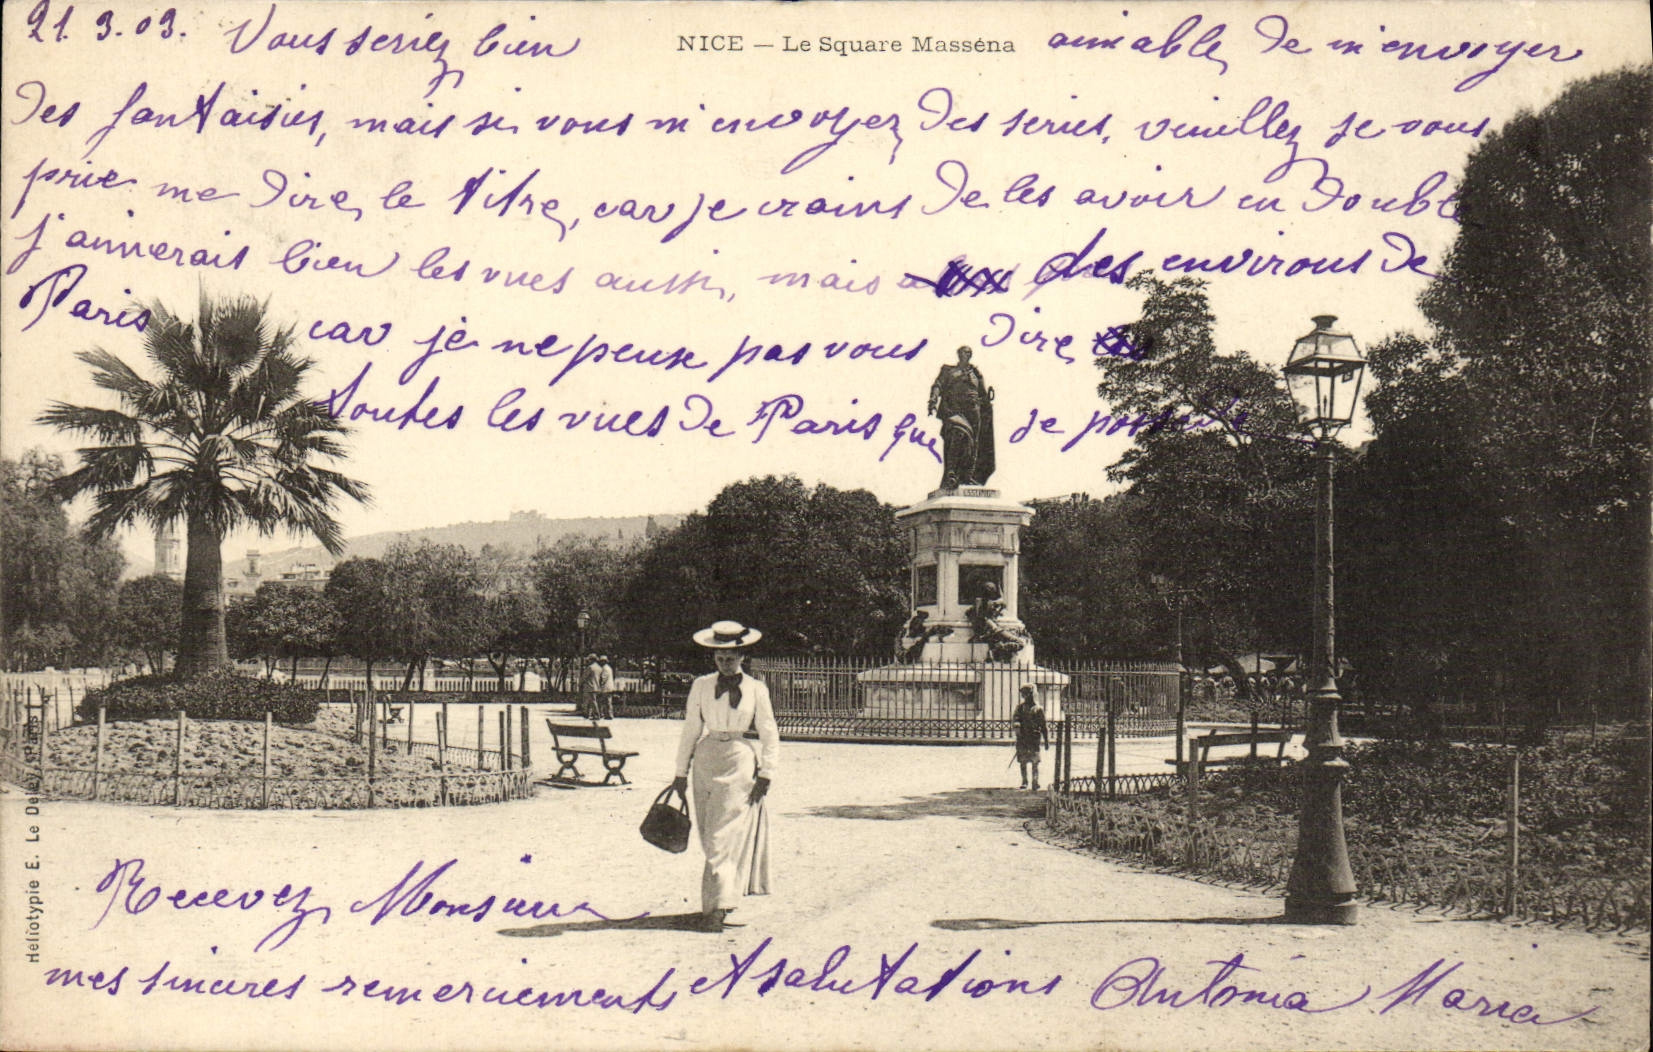 21.3.03. Vous seriez bien NICE — Le Square Masséna aimable de m'envoyer
des fantaisies, mais si vous m'envoyez des series, veuillez je vous
prie me dire le titre, car je crains de les avoir en double
j'aimerais bien les vues aussi, mais des environs de
Paris car je ne peux pas vous dire
toutes les vues de Paris que je possède
Recevez Monsieur
mes sincères remerciements et salutations Antonia Maria
Héliotypie E. Le Deley, Paris
ESSLING